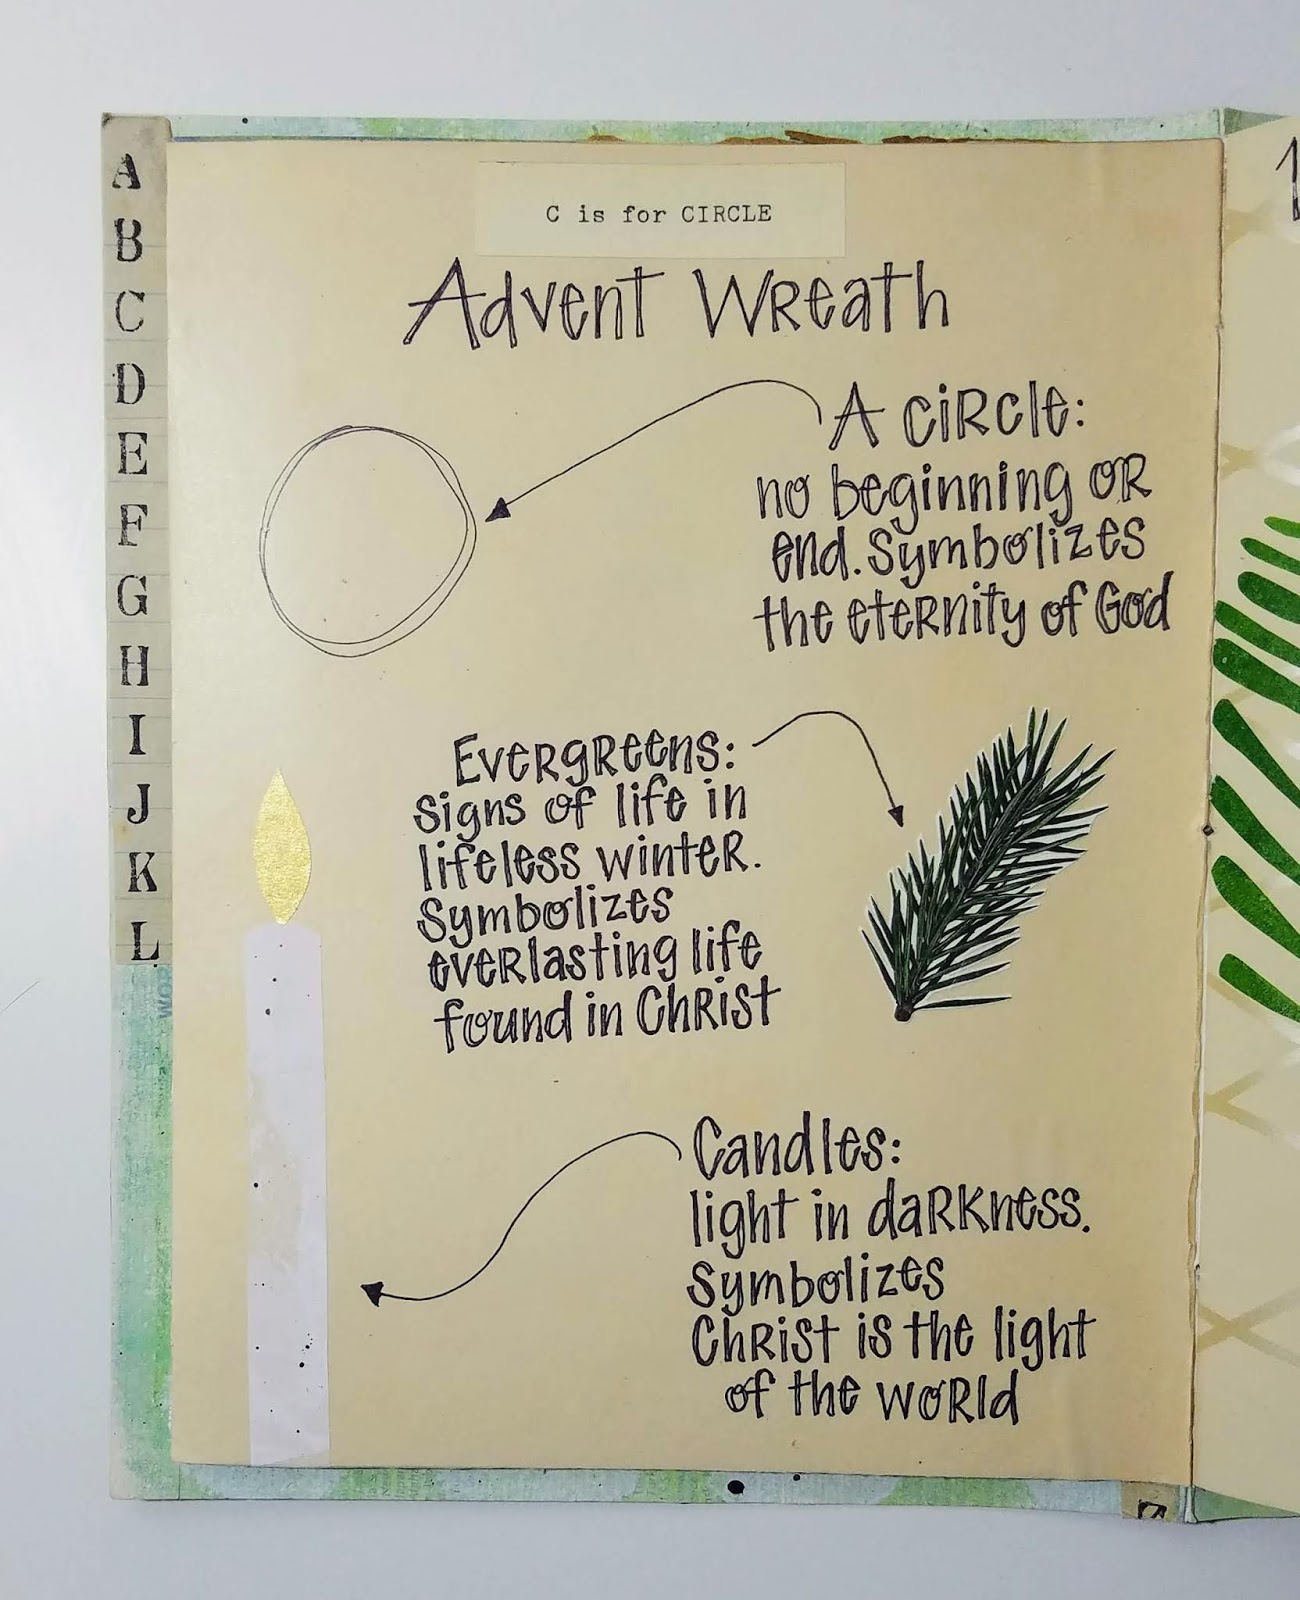 A
B
C
D
E
F
G
H
I
J
K
L
C is for CIRCLE
Advent Wreath
A circle:
no beginning or
end. Symbolizes
the eternity of God
Evergreens:
signs of life in
lifeless winter.
Symbolizes
everlasting life
found in Christ
Candles:
light in darkness.
Symbolizes
Christ is the light
of the world